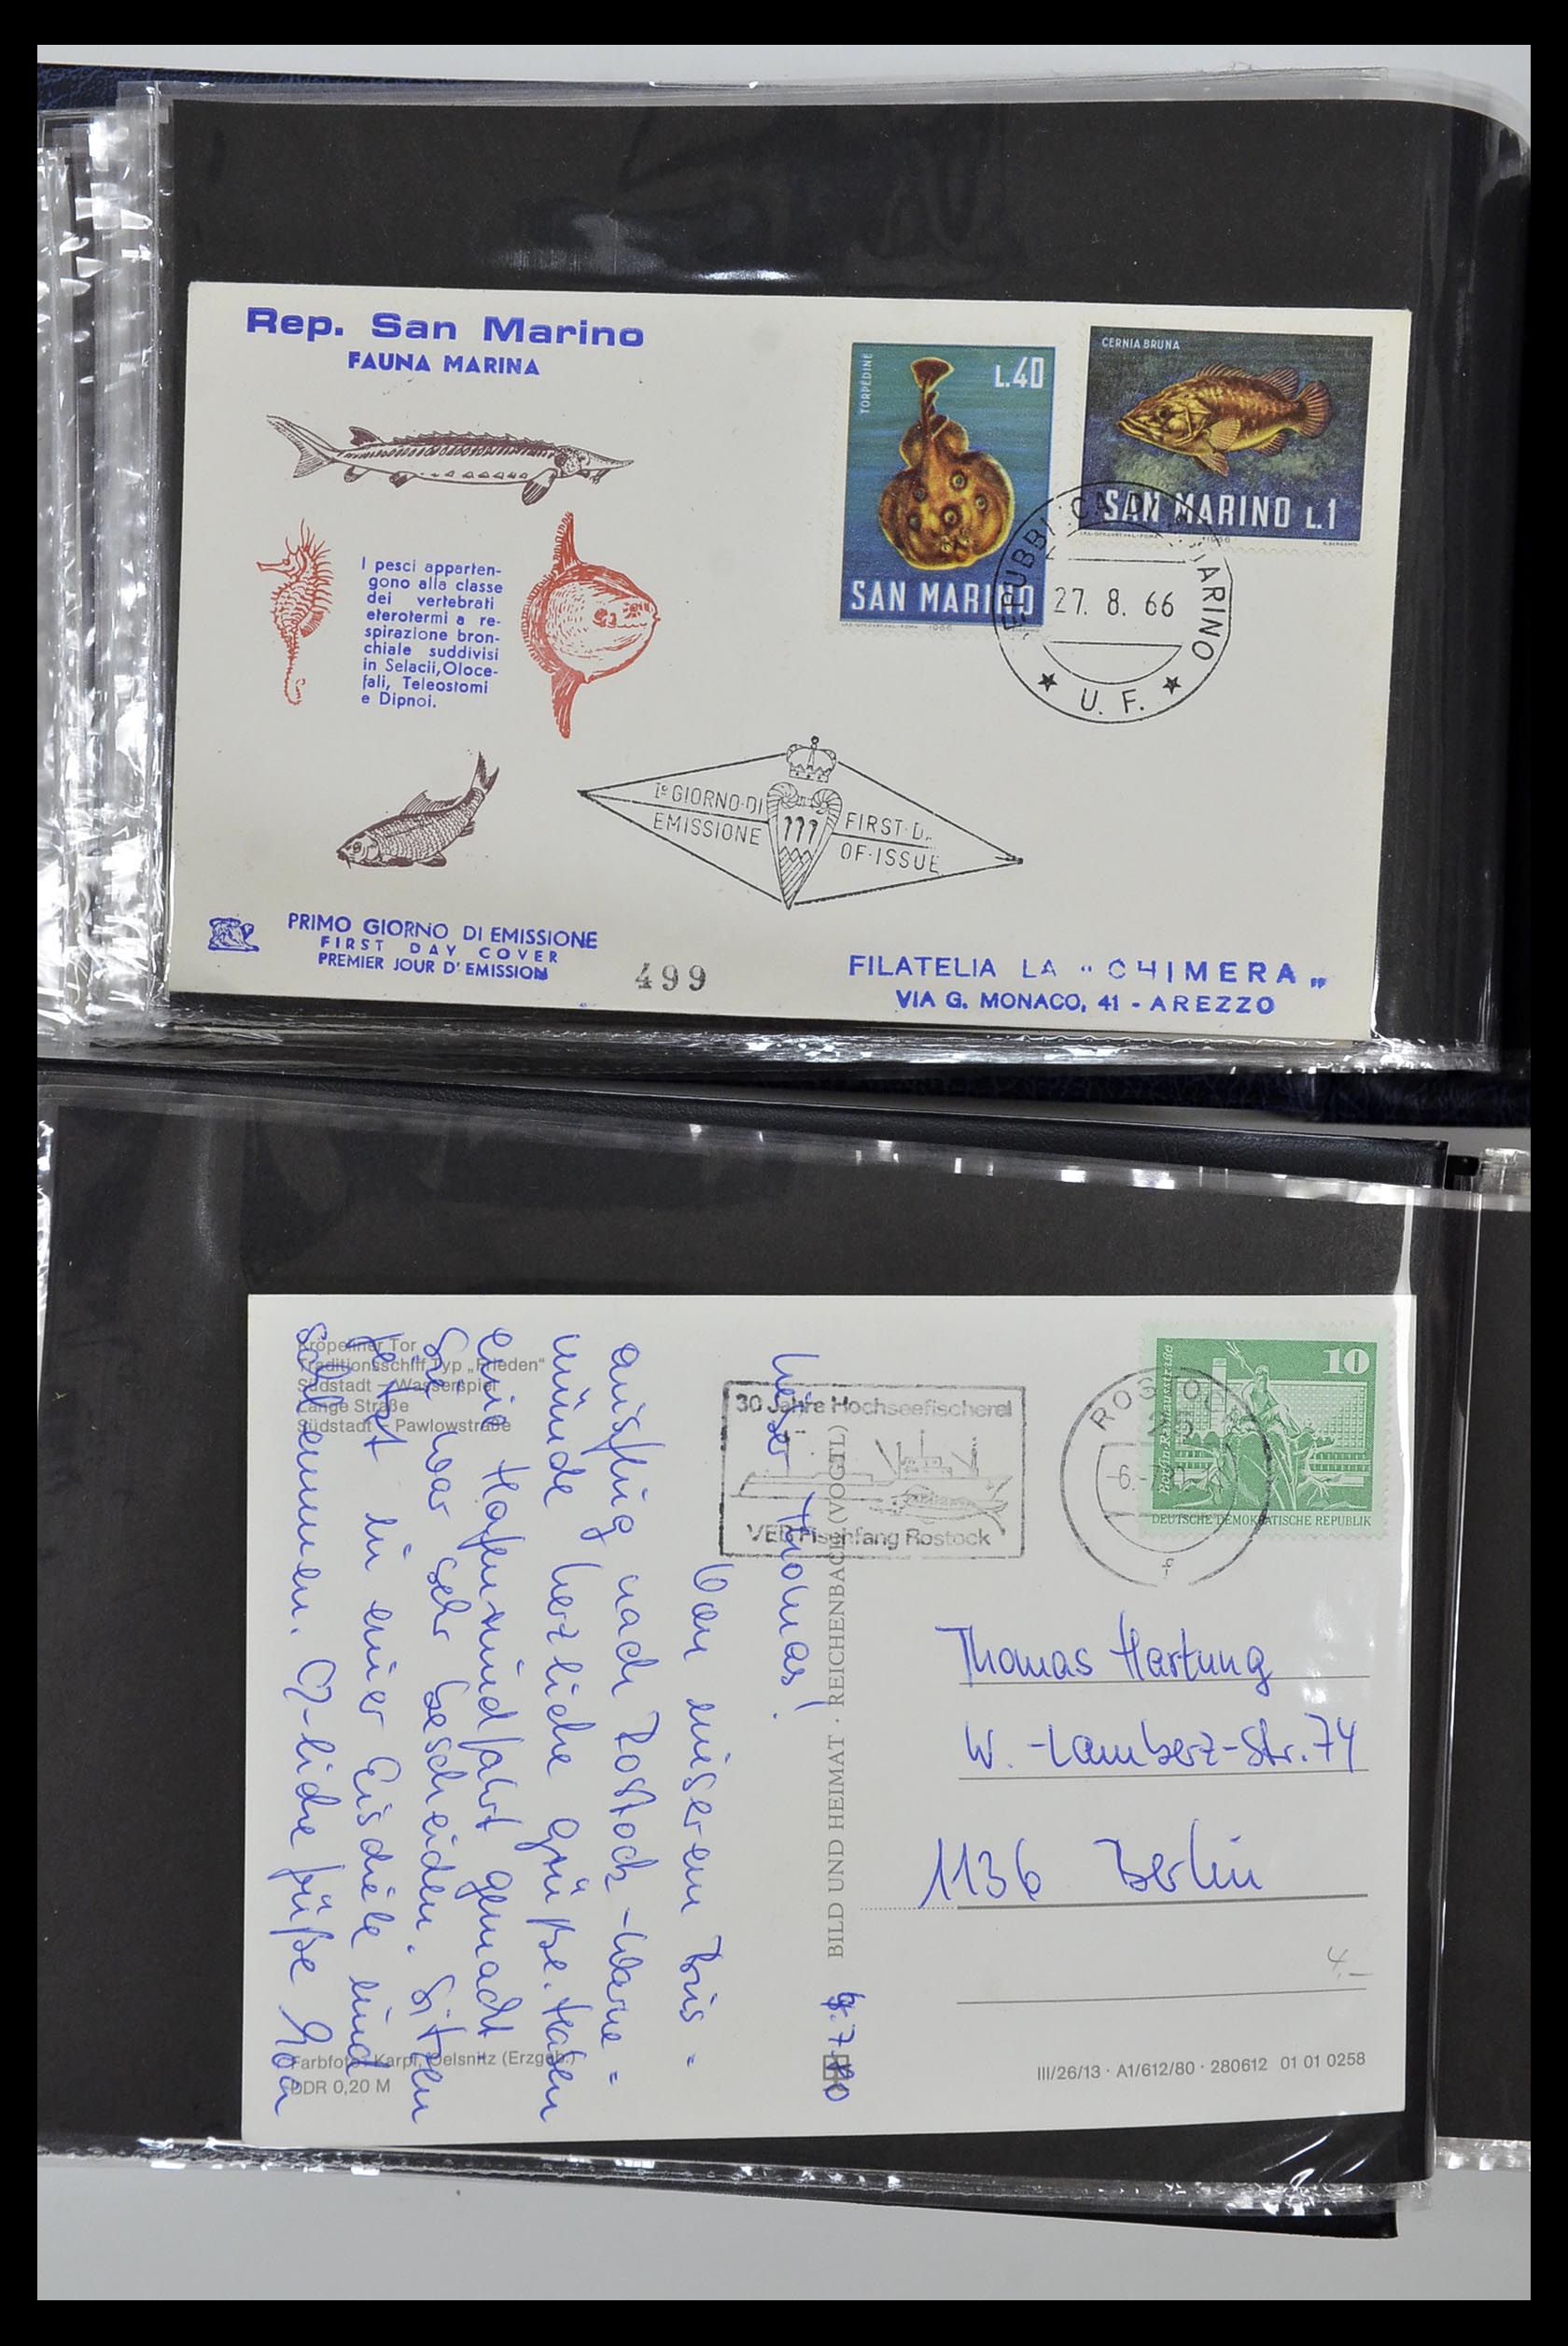 Rep. San Marino
FAUNA MARINA
I pesci apparten-
gono alla classe
dei vertebrati
eterotermi a re-
spirazione bron-
chiale suddivisi
in Selacii, Oloce-
fali, Teleostomi
e Dipnoi.
TORPEDINE
L.40
SAN MARINO
1966
CERNIA BRUNA
SAN MARINO L.1
1966
27. 8. 66
U. F.
Iº GIORNO·DI
EMISSIONE
FIRST·D
OF·ISSUE
PRIMO GIORNO DI EMISSIONE
FIRST DAY COVER
PREMIER JOUR D'EMISSION
499
FILATELIA LA "CHIMERA"
VIA G. MONACO, 41 - AREZZO
Kröpeliner Tor
Traditionsschiff Typ „Frieden“
Südstadt - Wasserspiel
Lange Straße
Südstadt - Pawlowstraße
9.7.80
Lieber Thomas!
Von unserem Aus-
ausflug nach Rostock-Warne=
münde herzliche Grüße. Haben
eine Hafenrundfahrt gemacht.
Sie war sehr bescheiden. Sitzen
jetzt in einer Eisdiele und
schlemmen.
30 Jahre Hochseefischerei
VEB Fischfang Rostock
ROSTOCK
25
-6.-7.
f
10
Berlin-Rathausstraße
DEUTSCHE DEMOKRATISCHE REPUBLIK
BILD UND HEIMAT · REICHENBACH (VOGTL)
Thomas Hartung
W.-Lamberz-Str. 74
1136 Berlin
4,-
Farbfoto: Karpf, Oelsnitz (Erzgeb.)
DDR 0,20 M
III/26/13 · A1/612/80 · 280612 01 01 0258